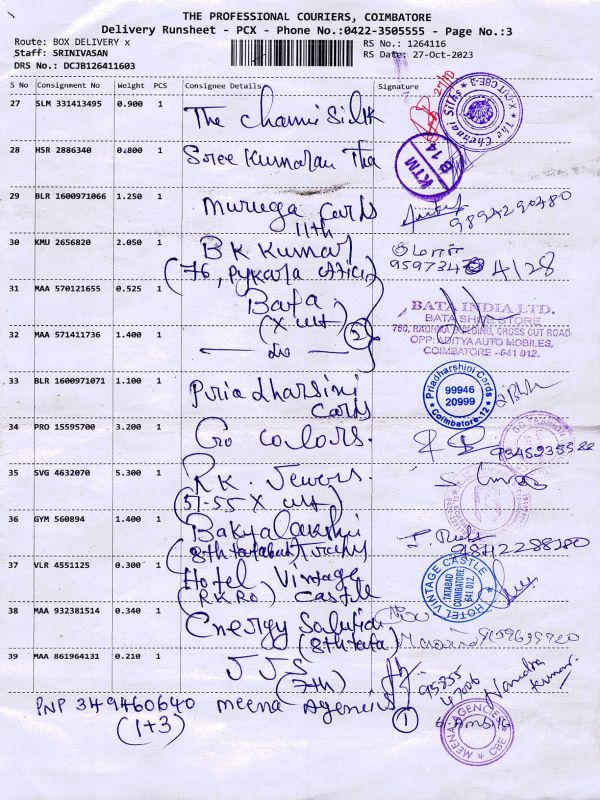 THE PROFESSIONAL COURIERS, COIMBATORE
Delivery Runsheet - PCX - Phone No.:0422-3505555 - Page No.:3
Route: BOX DELIVERY x
RS No.: 1264116
Staff: SRINIVASAN
RS Date: 27-Oct-2023
DRS No.: DCJB126411603
S No Consignment No Weight PCS Consignee Details Signature
27 SLM 331413495 0.900 1 The Chennai Silk
The Chennai Silks
28 HSR 2886340 0.800 1 Sree Kumaran Tha
KTM
B 14
29 BLR 1600971066 1.250 1 Muruga Cards 9894290480
11th
30 KMU 2656820 2.050 1 B K Kumar
(76, Pykara office) 4128
31 MAA 570121655 0.525 1 Bata
(X cut) (2)
BATA INDIA LTD.
BATA SHOE STORE
760, RADHIKA BUILDING, CROSS CUT ROAD
OPP: ADITYA AUTO MOBILES,
COIMBATORE - 641 012.
32 MAA 571411736 1.400 1 — do —
33 BLR 1600971071 1.100 1 Priadharsini
Cards
Priadharshini Cards
99946
20999
Coimbatore-12
34 PRO 15595700 3.200 1 Go colors.
35 SVG 4632070 5.300 1 R K. Jewers.
(51-55 X cut)
36 GYM 560894 1.400 1 Bakyalakshmi
(8th tatabad)
37 VLR 4551125 0.300 1 Hotel Vintage
(RKRO) Castle
HOTEL VINTAGE CASTLE
TATABAD
COIMBATORE
641 012.
38 MAA 932381514 0.340 1 Energy Solution
(8th tata)
39 MAA 861964131 0.210 1 J J S
(7th)
95855
47006
Narendra
Kumar
PNP 349460640 Meena Agencies (1)
(1+3)
MEENA AGENCIES
CBE